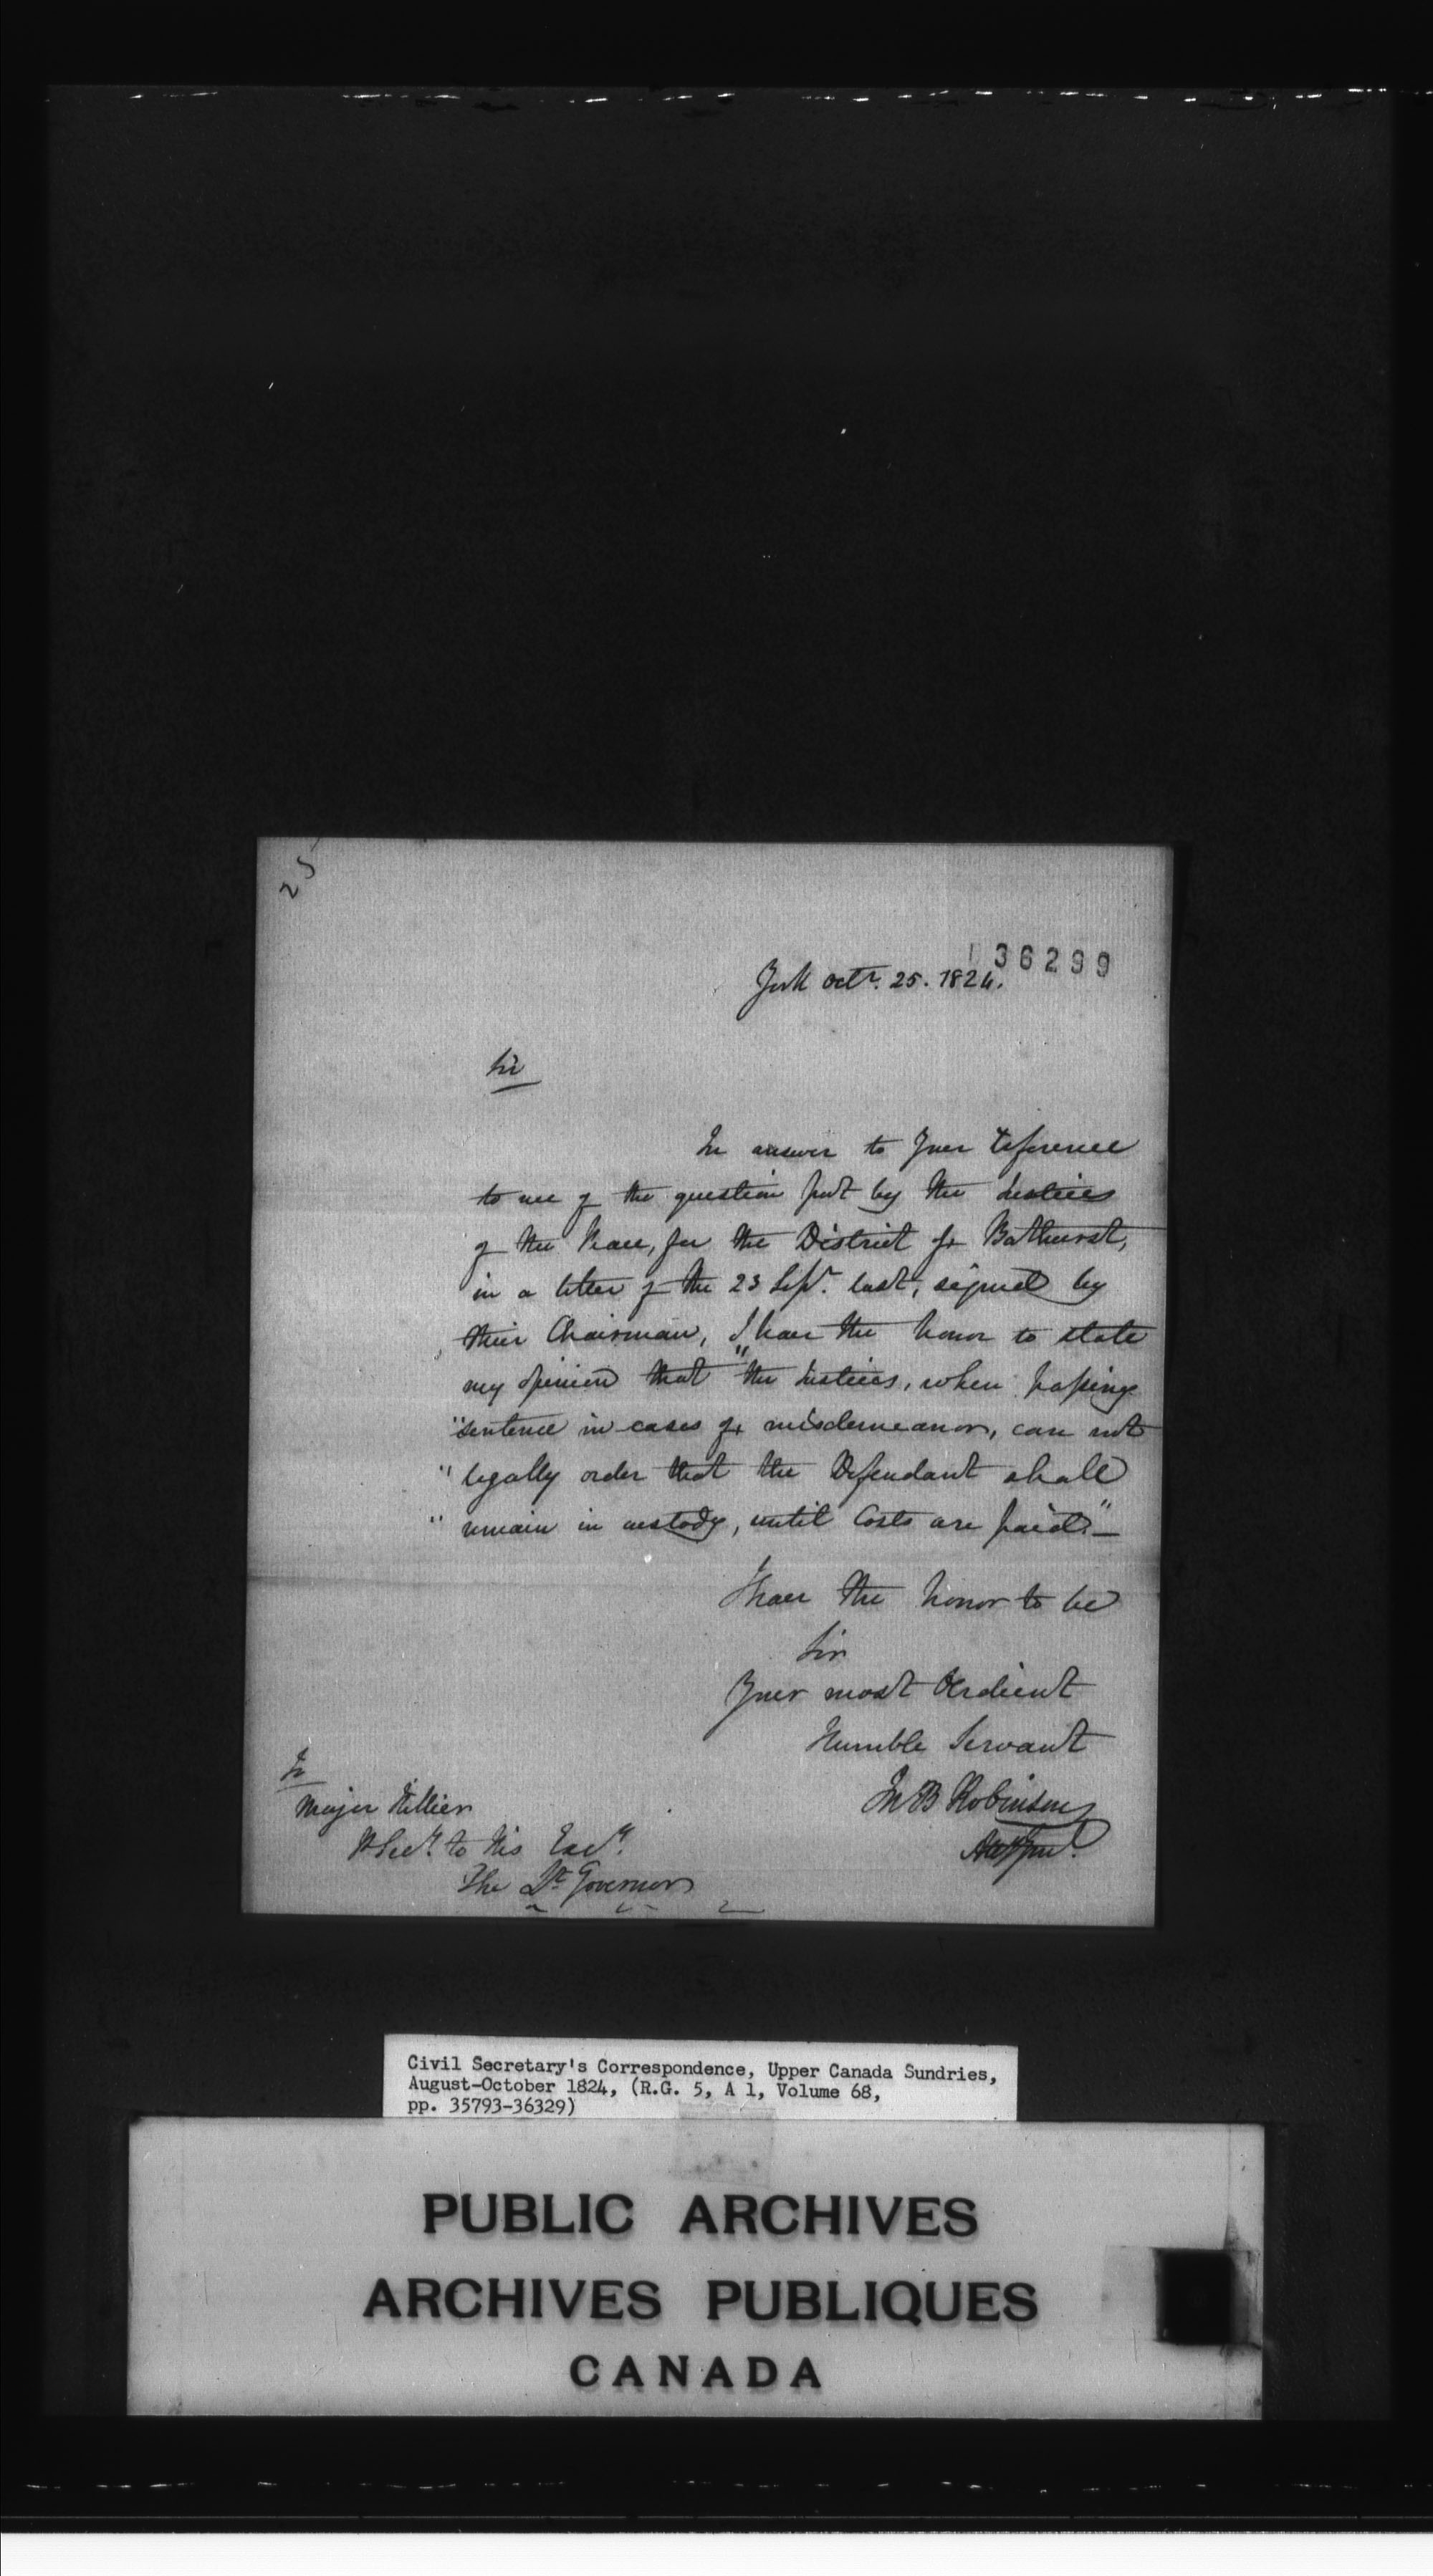 25
36299
York Octr. 25. 1824.
Sir
In answer to Your reference
to me of the question put by the Justices
of the Peace, for the District of Bathurst,
in a letter of the 23 Sepr. last, signed by
their Chairman, I have the honor to state
my opinion that "the Justices, when passing
"sentence in cases of misdemeanor, can not
"legally order that the Defendant shall
"remain in custody, until Costs are paid."—
I have the honor to be
Sir
Your most Obedient
Humble Servant
Jn B Robinson
Atty Genl.
To
Major Hillier
P Secy. to His Excy.
The Lt Governor
Civil Secretary's Correspondence, Upper Canada Sundries,
August-October 1824, (R.G. 5, A 1, Volume 68,
pp. 35793-36329)
PUBLIC ARCHIVES
ARCHIVES PUBLIQUES
CANADA